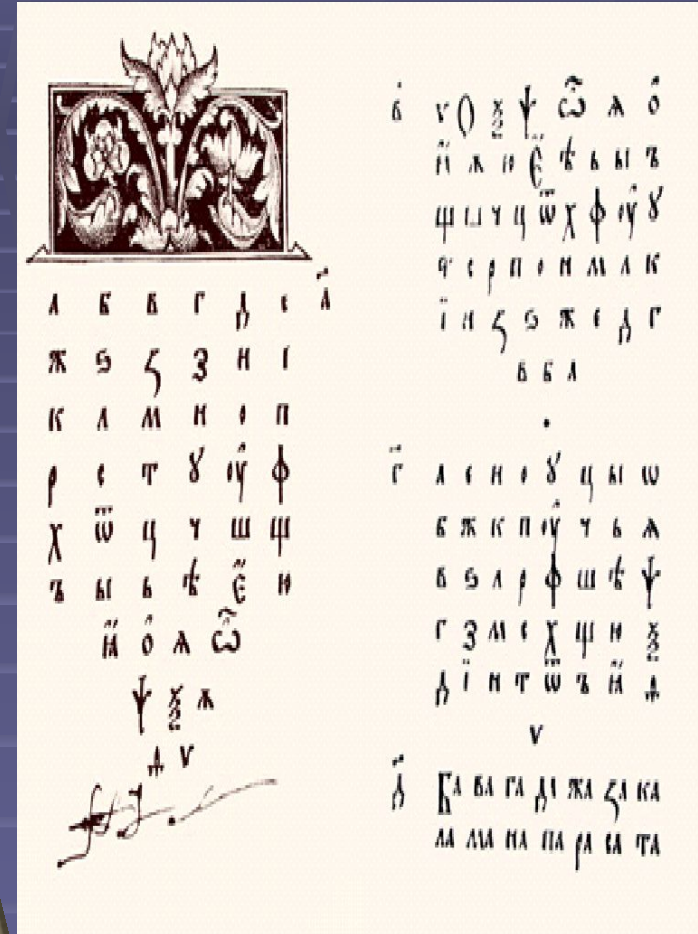 а҃
а б в г д є
ж ѕ ꙁ з и і
к л м н о п
р с т ꙋ оу ф
х ѿ ц ч ш щ
ъ ы ь ѣ є н
й о ѧ ѽ
ѱ ѯ ѧ
ѵ
в҃ ѵ ѳ ѯ ѱ ѽ ѧ о
й н є ѣ ь ы ъ
щ ш ч ц ѿ х ф оу ꙋ
т с р п о н м л к
і и ꙁ ѕ ж є д г
в б а
.
г҃ а є и о ꙋ ц ы ѡ
б ж к п оу ч ь ѧ
в ѕ л р ф ш ѣ ѱ
г з м с х щ ѯ
д і н т ѿ ъ й
ѵ
д҃ Ба ва га да жа ꙁа ка
ла ма на па ра са та